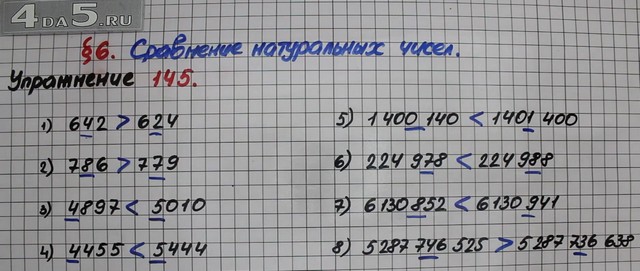 4DA5.RU
§6. Сравнение натуральных чисел.
Упражнение 145.
1) 642 > 624
2) 786 > 779
3) 4897 < 5010
4) 4455 < 5444
5) 1 400 140 < 1401 400
6) 224 978 < 224 988
7) 6130 852 < 6130 941
8) 5287 746 525 > 5287 736 638